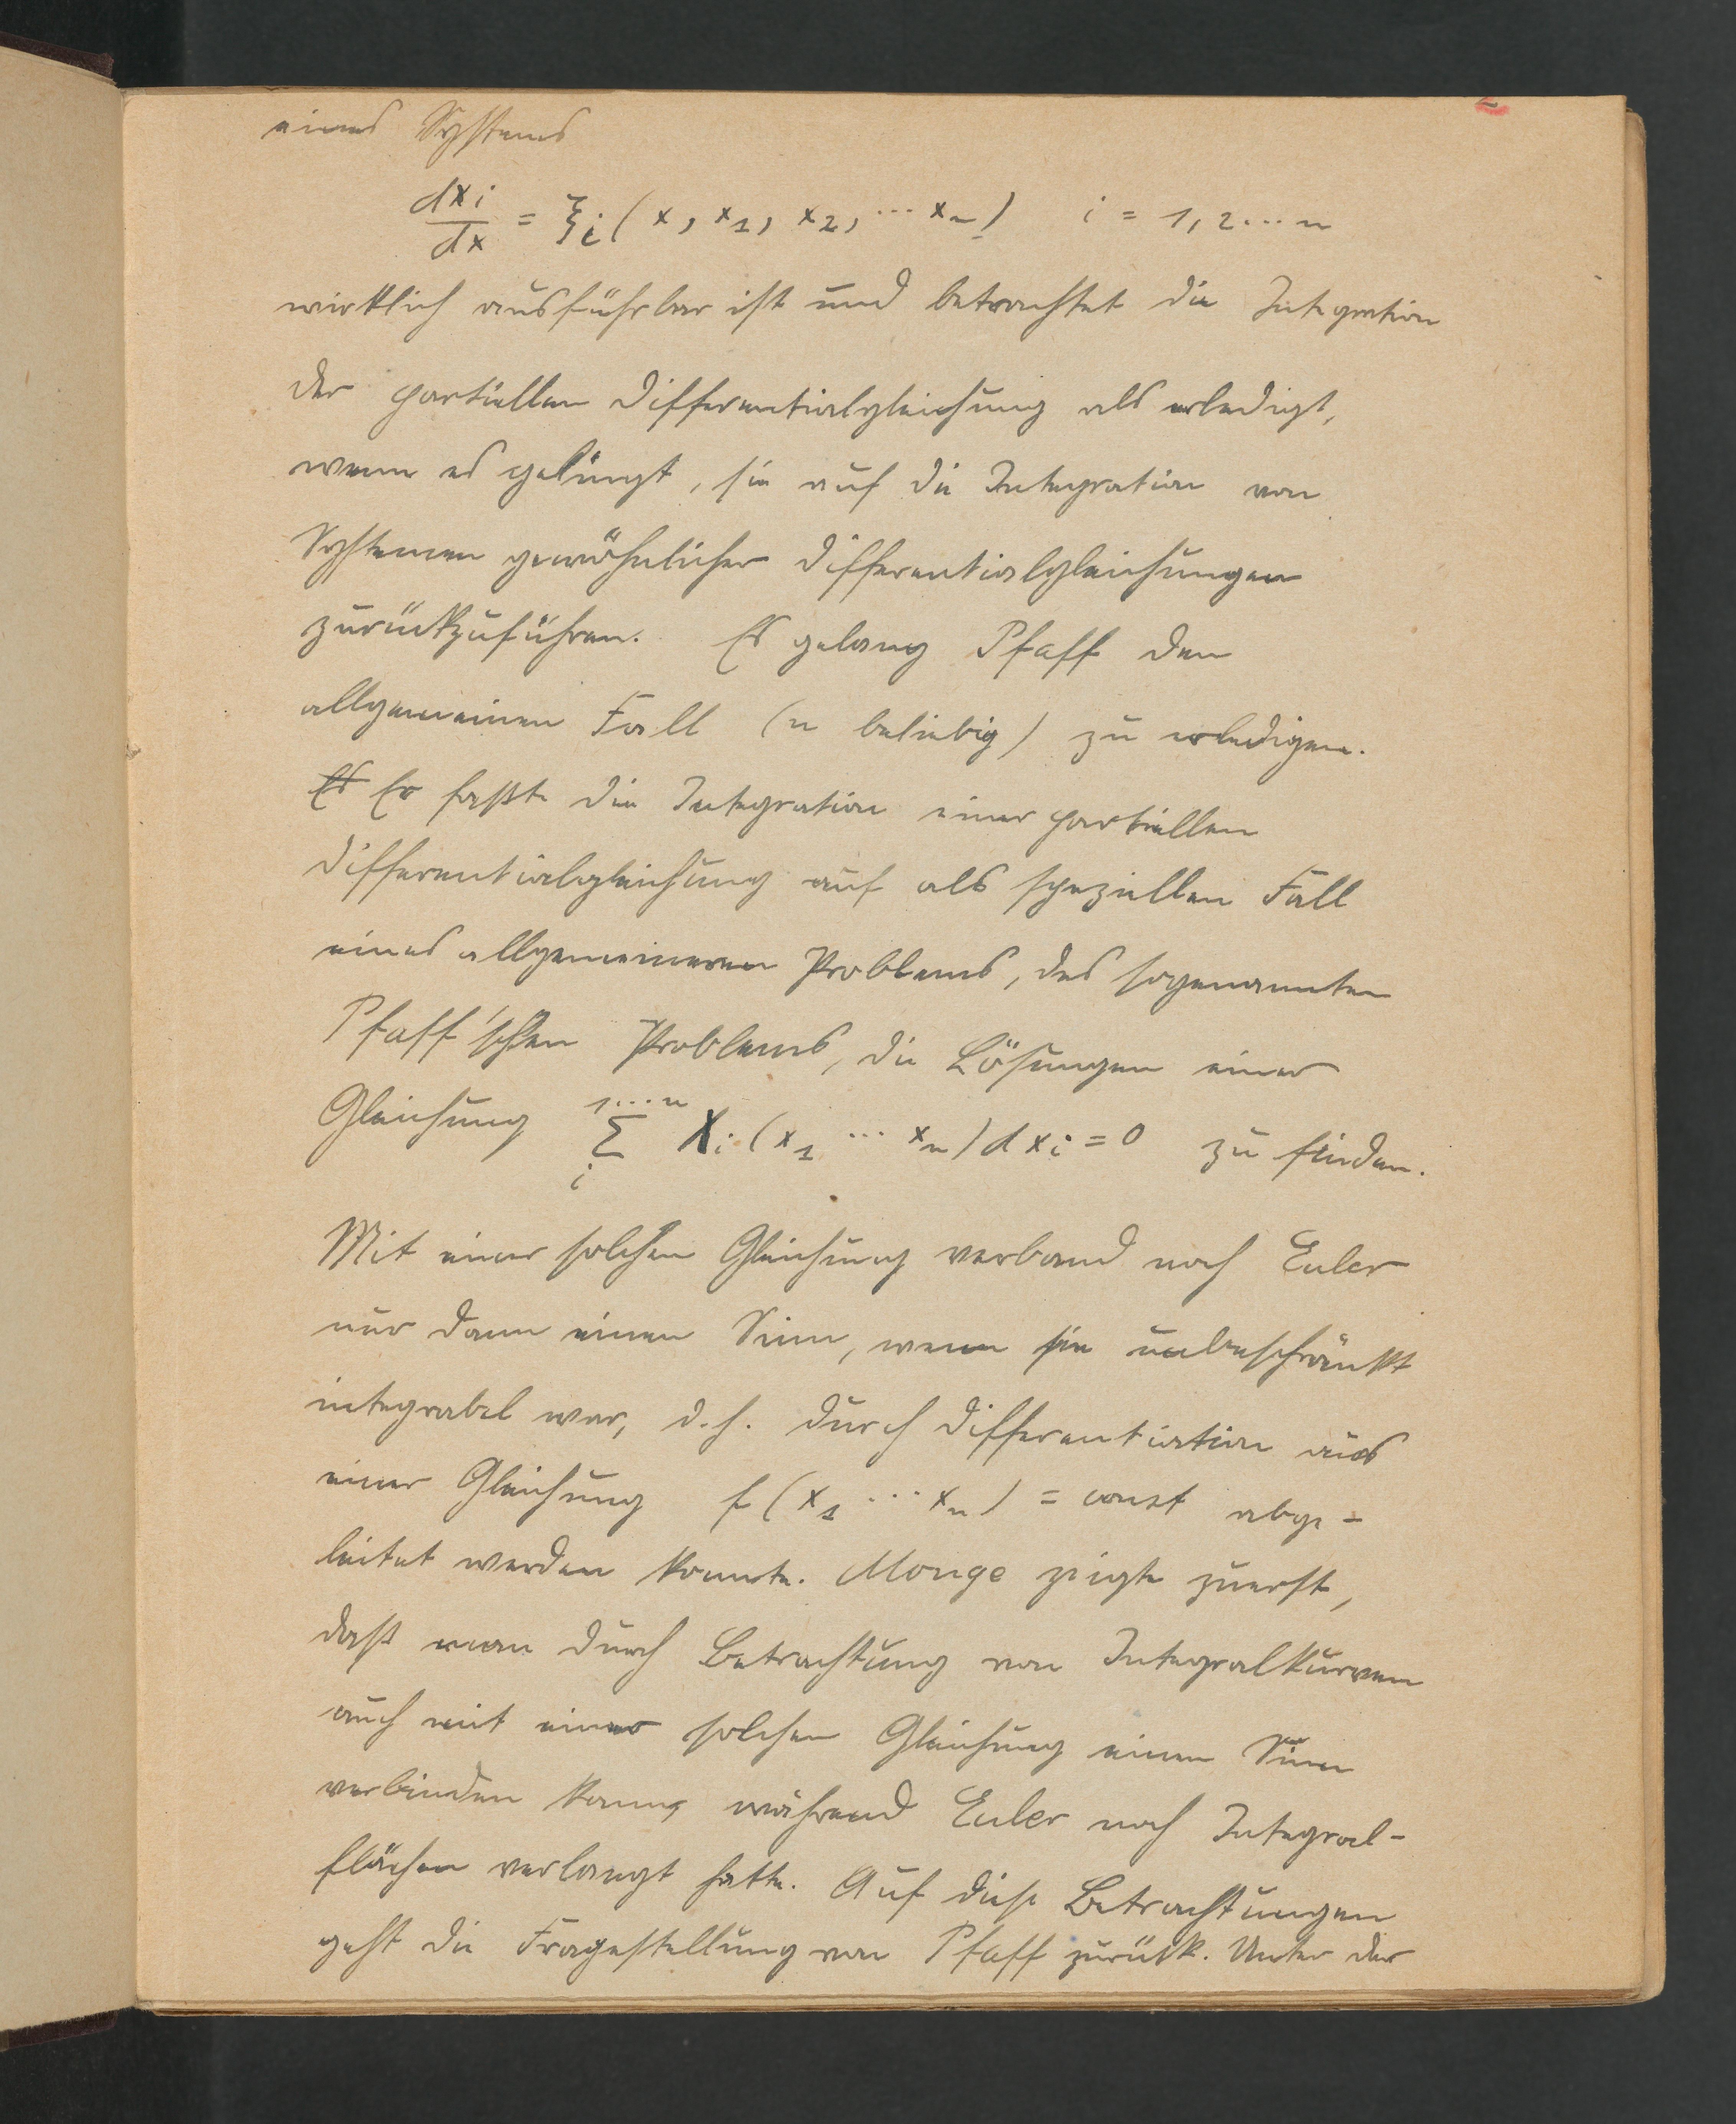 eines Systems
dxi/dx = ξi (x, x1, x2, ... xn) i = 1, 2 ... n
wirklich ausführbar ist und betrachtet die Integration
der partiellen Differentialgleichung als erledigt,
wenn es gelingt, sie auf die Integration von
Systemen gewöhnlicher Differentialgleichungen
zurückzuführen. Es gelang Pfaff den
allgemeinen Fall (n beliebig) zu erledigen.
Es Er faßte die Integration einer partiellen
Differentialgleichung auf als speziellen Fall
eines allgemeineren Problems, des sogenannten
Pfaff'schen Problems, die Lösungen einer
Gleichung 1....n Σ i Xi (x1 ... xn) dxi = 0 zu finden.
Mit einer solchen Gleichung verband noch Euler
nur dann einen Sinn, wenn sie unbeschränkt
integrabel war, d.h. durch Differentiation aus
einer Gleichung f (x1 ... xn) = const abge-
leitet werden konnte. Monge zeigte zuerst,
daß man durch Betrachtung von Integralkurven
auch mit einer solchen Gleichung einen Sinn
verbinden kann, während Euler noch Integral-
flächen verlangt hatte. Auf diese Betrachtungen
geht die Fragestellung von Pfaff zurück. Unter der